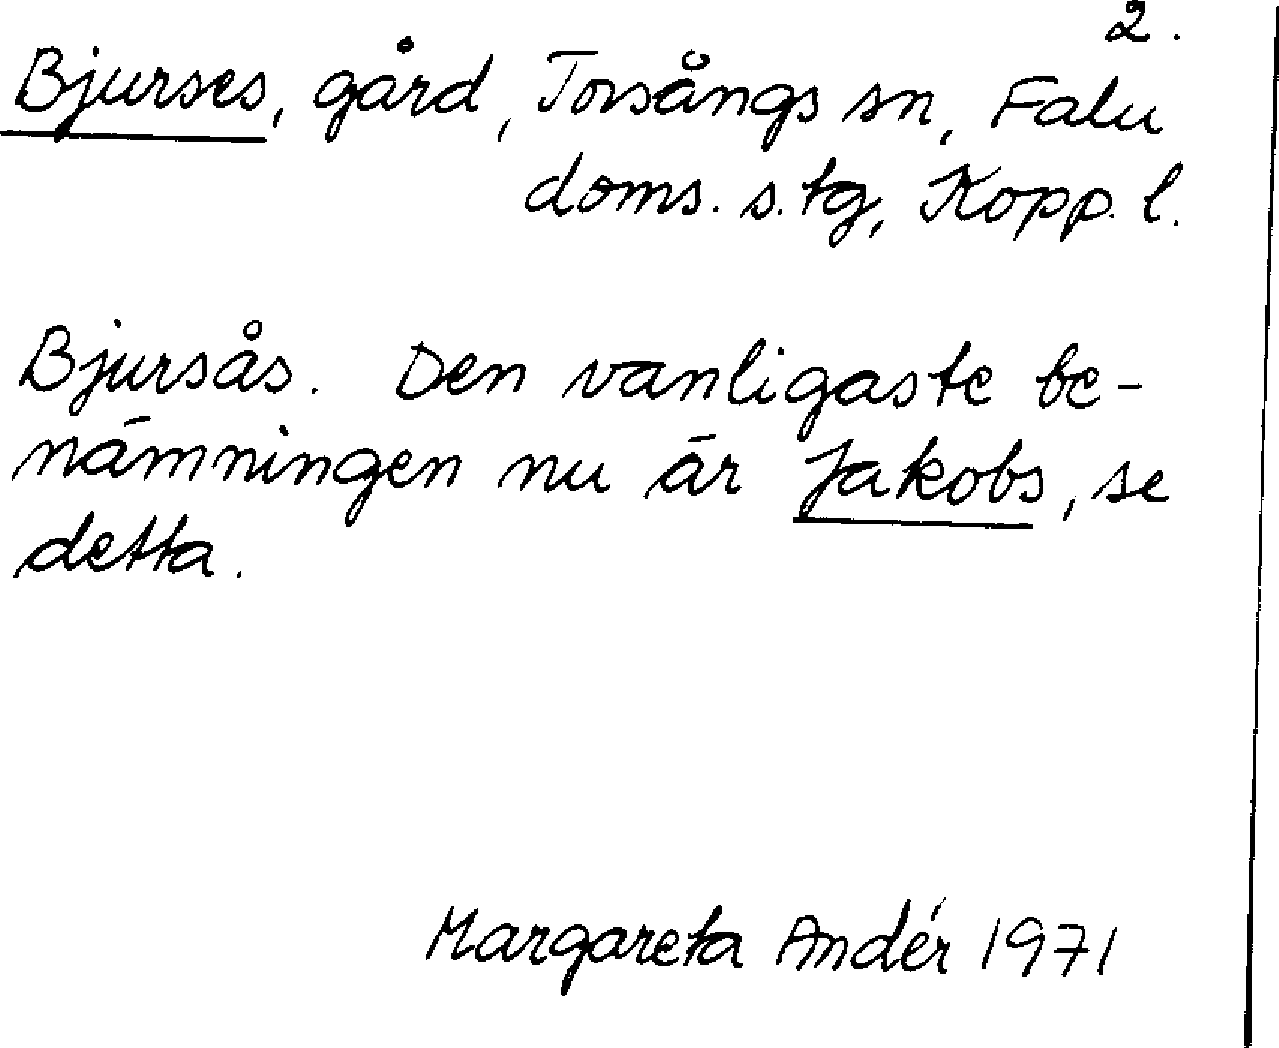 2.
Bjurses, gård, Torsångs sn, Falu
doms. s. tg, Kopp. l.
Bjursås. Den vanligaste be-
nämningen nu är Jakobs, se
detta.
Margareta Andér 1971